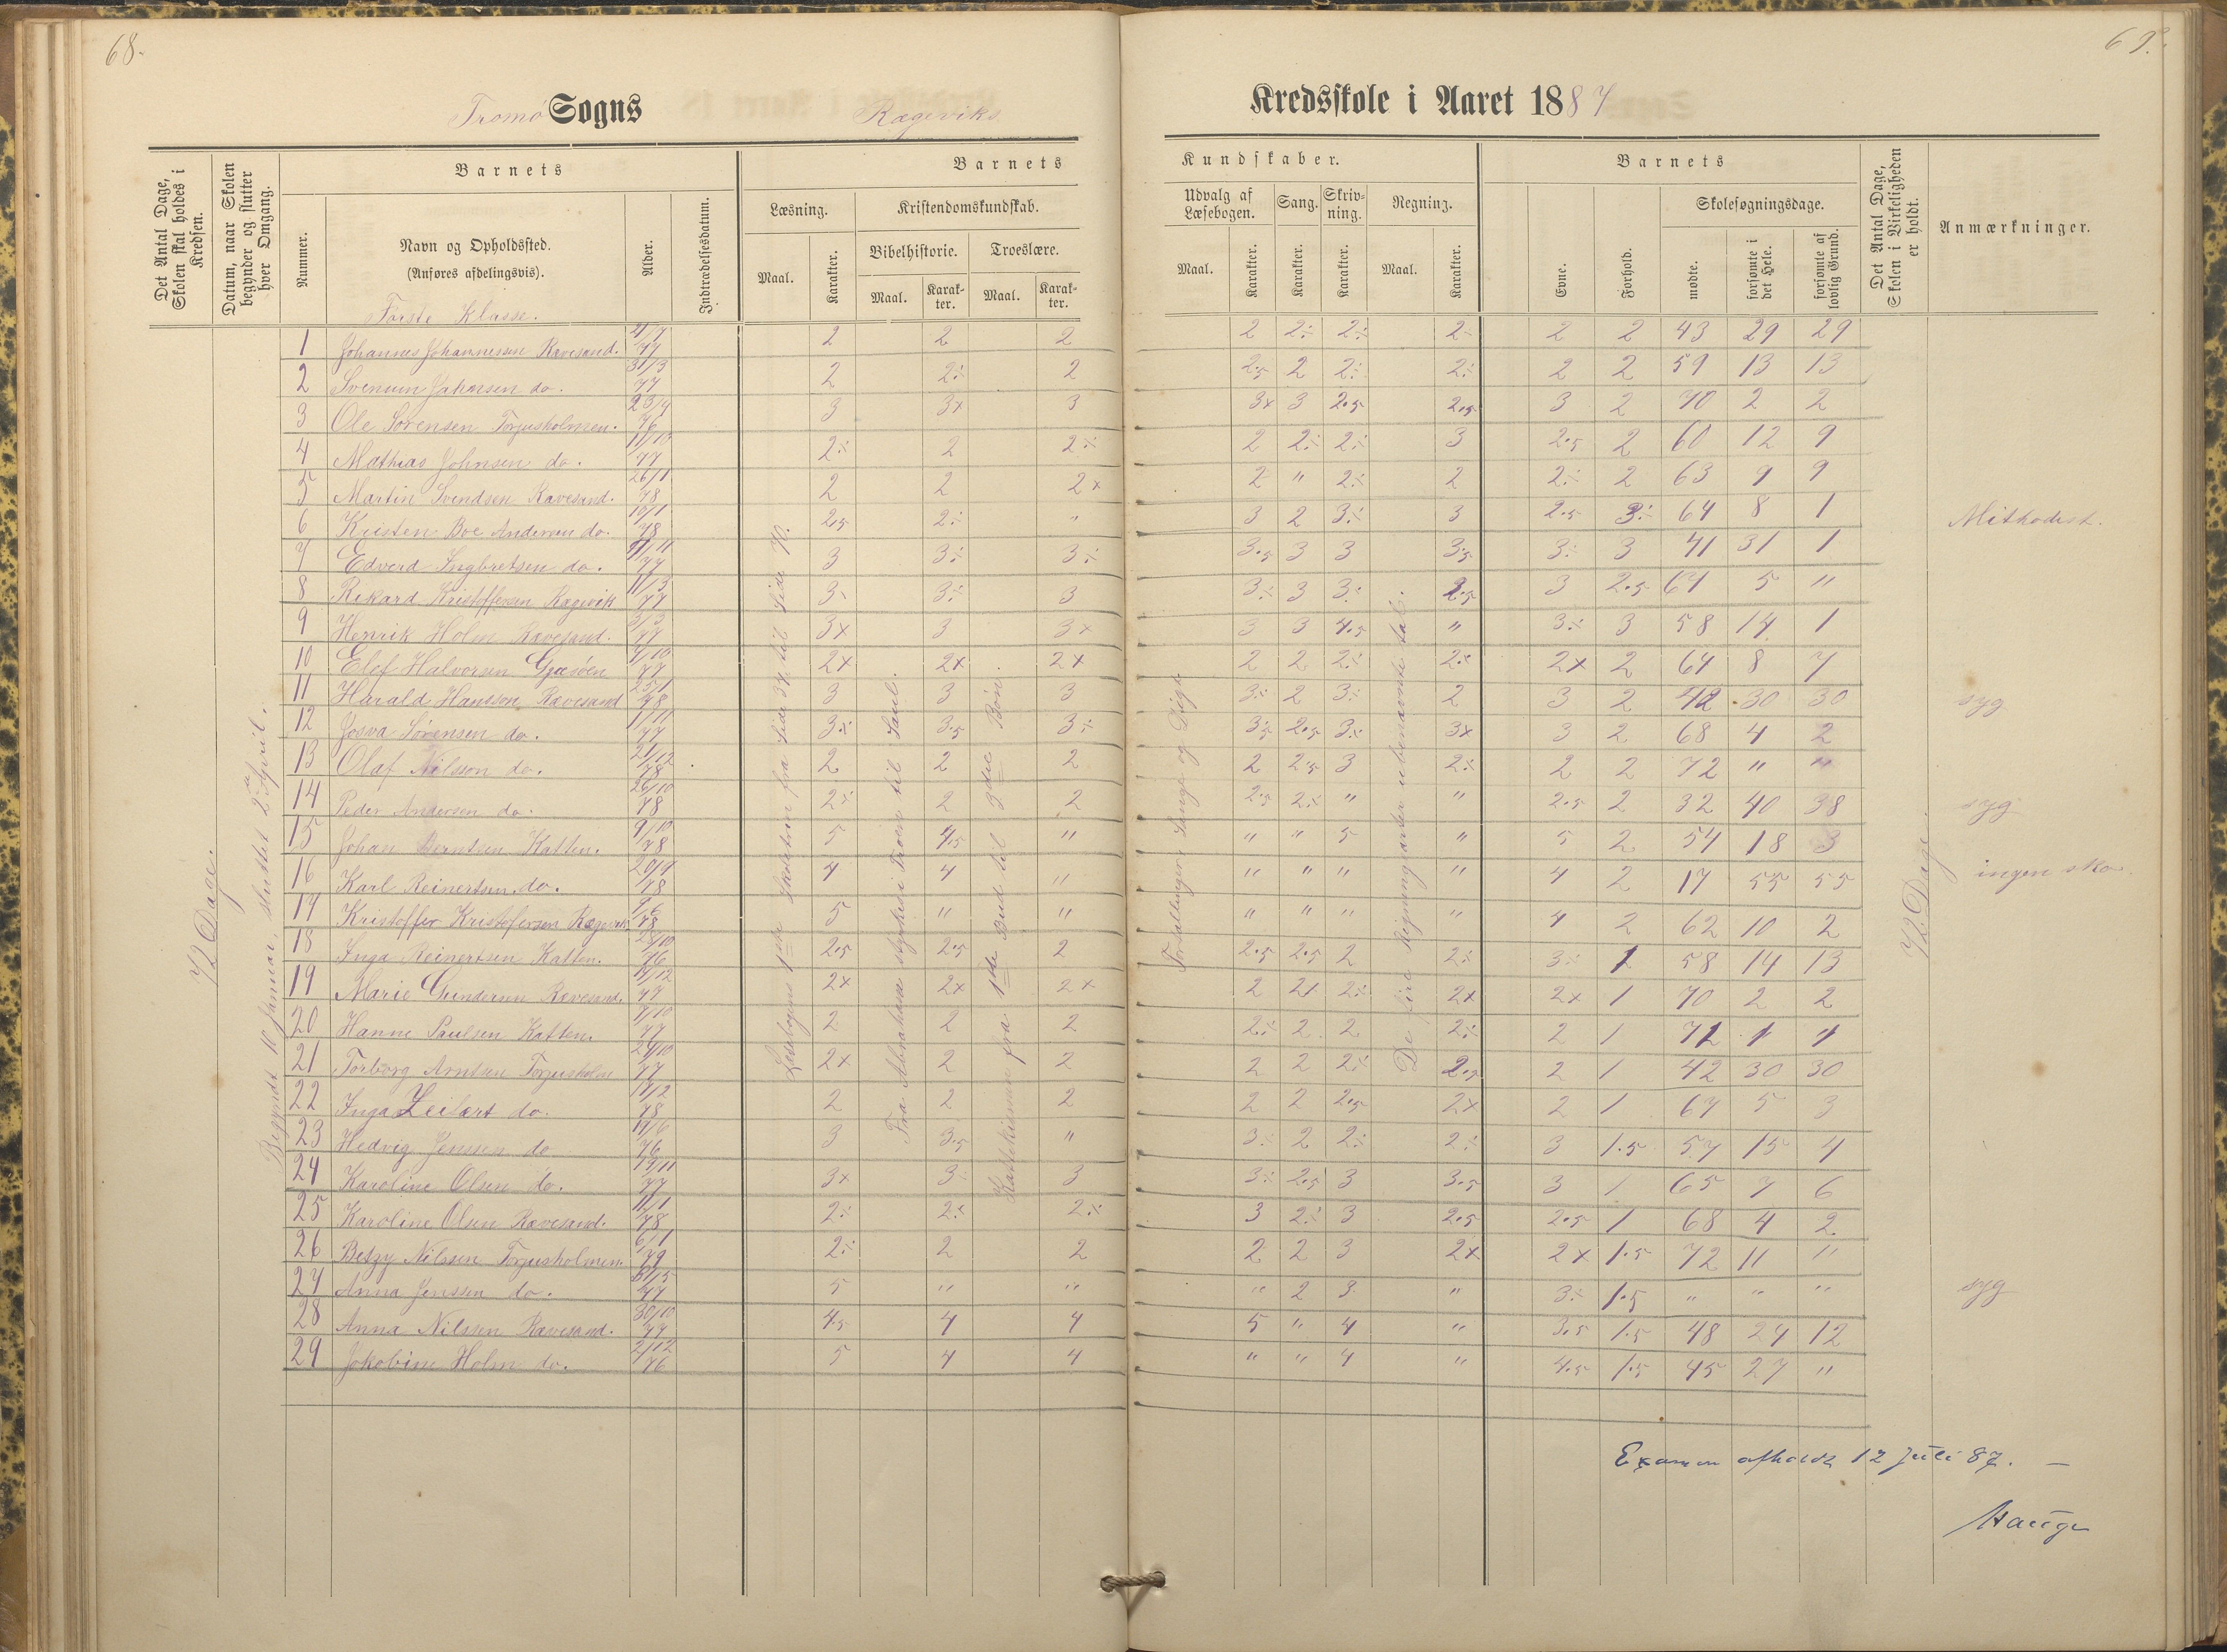 68.
69.
Tromø Sogns Rægeviks Kredsskole i Aaret 1887
Det Antal Dage, Skolen skal holdes i Kredsen.
Datum, naar Skolen begynder og slutter hver Omgang.
Barnets
Nummer.
Navn og Opholdssted.
(Anføres afdelingsvis).
Alder.
Indtrædelsesdatum.
Barnets Kundskaber.
Læsning.
Maal.
Karakter.
Kristendomskundskab.
Bibelhistorie.
Maal.
Karakter.
Troeslære.
Maal.
Karakter.
Udvalg af Læsebogen.
Maal.
Karakter.
Sang.
Karakter.
Skrivning.
Karakter.
Regning.
Maal.
Karakter.
Barnets
Evne.
Forhold.
Skolesøgningsdage.
mødte.
forsømte i det Hele.
forsømte af lovlig Grund.
Det Antal Dage, Skolen i Virkeligheden er holdt.
Anmærkninger.
Første Klasse.
72 Dage.
Begyndt 10 Januar, sluttet 2 April.
Læsebogens 1ste Skoletrin fra Side 37 til Side 70.
Fra Abrahams styrkes i Troen til Saul.
Katekismen fra 1ste Bud til 3die Bøn
Fortællinger Sange og Digt
De fire Regningsarter ubenævnte tal.
72 Dage.
1 Johannes Johannessen Ravesand. 4/7 77 2 2 2 2 2÷ 2÷ 2÷ 2 2 43 29 29
2 Svenum Johnsen do. 31/3 77 2 2÷ 2 2.5 2 2÷ 2÷ 2 2 59 13 13
3 Ole Sørensen Torjusholmen. 23/9 76 3 3x 3 3x 3 2.5 2.5 3 2 70 2 2
4 Mathias Johnsen do. 11/10 77 2÷ 2 2÷ 2 2÷ 2÷ 3 2.5 2 60 12 9
5 Martin Svendsen Ravesand. 26/1 78 2 2 2x 2 " 2÷ 2 2÷ 2 63 9 9
6 Kristen Boe Andersen do. 10/1 78 2.5 2÷ " 3 2 3÷ 3 2.5 3÷ 64 8 1 Mithodist.
7 Edverd Ingbretsen do. 11/11 77 3 3÷ 3÷ 3.5 3 3 3.5 3÷ 3 41 31 1
8 Rikard Kristoffersen Rægevik 11/3 77 3÷ 3÷ 3 3÷ 3 3÷ 2.5 3 2.5 67 5 "
9 Henrik Holm Ravesand. 3/3 77 3x 3 3x 3 3 4.5 " 3÷ 3 58 14 1
10 Elef Halvorsen Gjæsøen 4/10 77 2x 2x 2x 2 2 2÷ 2÷ 2x 2 64 8 7
11 Harald Hanssen Ravesand 25/1 78 3 3 3 3÷ 2 3÷ 2 3 2 42 30 30 syg
12 Josva Sørensen do. 1/11 77 3÷ 3.5 3÷ 3.5 2.5 3÷ 3x 3 2 68 4 2
13 Olaf Nilsson do. 21/12 78 2 2 2 2 2.5 3 2÷ 2 2 72 " "
14 Peder Andersen do. 26/10 78 2÷ 2 2 2.5 2÷ " " 2.5 2 32 40 38 syg
15 Johan Berntsen Katten. 9/10 78 5 4.5 " " " 5 " 5 2 54 18 3
16 Karl Reinertsen do. 20/9 78 4 4 " " " " " 4 2 17 55 55 ingen sko
17 Kristoffer Kristofersen Rægevik 9/6 78 5 " " " " " " 4 2 62 10 2
18 Inga Reinertsen Katten. 27/10 76 2.5 2.5 2 2.5 2.5 2 2÷ 3÷ 1 58 14 13
19 Marie Gundersen Ravesand. 17/12 77 2x 2x 2x 2 2x 2÷ 2x 2x 1 70 2 2
20 Hanne Paulsen Katten. 7/10 77 2 2 2 2÷ 2 2 2÷ 2 1 71 1 1
21 Torborg Arntsen Torjusholm 24/10 77 2x 2 2 2 2 2÷ 2.5 2 1 42 30 30
22 Inga Leifært do. 17/2 78 2 2 2 2 2 2.5 2x 2 1 67 5 3
23 Hedvig Jenssen do 19/6 76 3 3.5 " 3÷ 2 2÷ 2÷ 3 1.5 57 15 4
24 Karoline Olsen do. 17/11 77 3x 3÷ 3 3÷ 2.5 3 3.5 3 1 65 7 6
25 Karoline Olsen Ravesand. 11/1 78 2÷ 2÷ 2÷ 3 2÷ 3 2.5 2.5 1 68 4 2
26 Betzy Nilssen Torjusholmen. 6/1 79 2÷ 2 2 2 2 3 2x 2x 1.5 72 " "
27 Anna Jenssen do. 31/5 77 5 " " " 2 3 " 3÷ 1.5 " " " syg
28 Anna Nilssen Ravesand. 30/10 77 4.5 4 4 5 " 4 " 3.5 1.5 48 24 12
29 Jokobine Holm do. 2/12 76 5 4 4 " " 4 " 4.5 1.5 45 27 "
Examen afholdt 12 Juli 87. —
Hauge